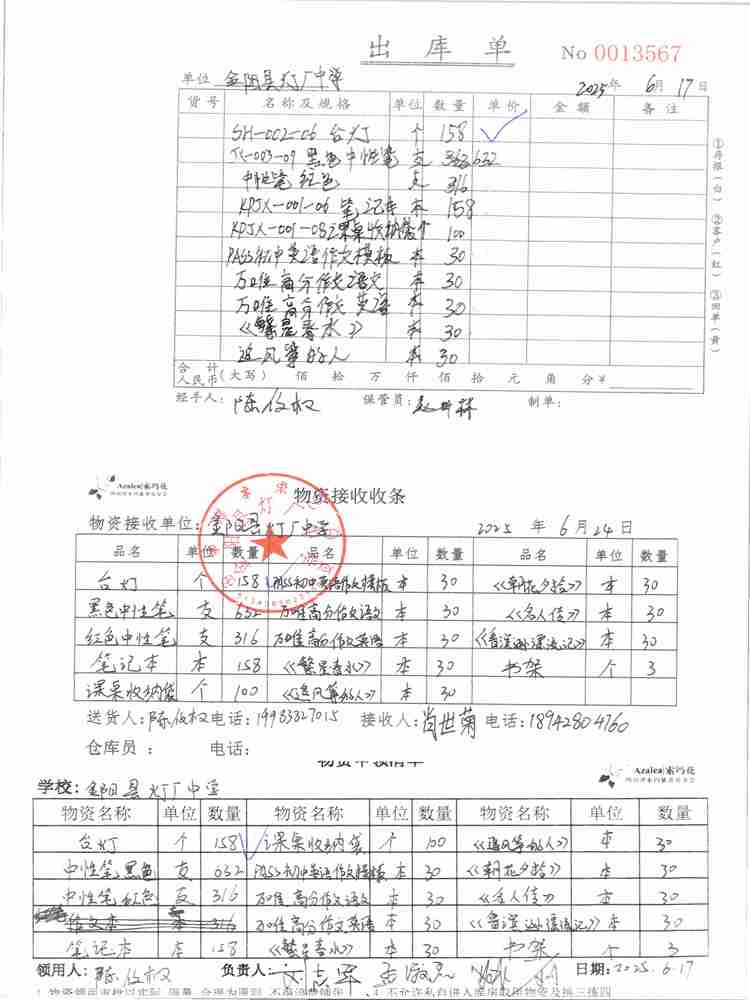 出 库 单 No 0013567
单位 金阳县灯厂中学 2025年 6月 17日
货号 名称及规格 单位 数量 单价 金额 备注
SH-002-06 台灯 个 158
TK-003-09 黑色中性笔 支 632
中性笔 红色 支 316
KPJX-001-06 笔记本 本 158
KPJX-001-08 课桌收纳袋 个 100
PASS初中英语作文模板 本 30
万唯高分作文语文 本 30
万唯高分作文英语 本 30
《繁星春水》 本 30
追风筝的人 本 30
合计人民币(大写) 佰 拾 万 仟 佰 拾 元 角 分 ¥
经手人: 陈仪权 保管员: 制单:
①存根(白) ②客户(红) ③回单(黄)
Azalea|索玛花
物资接收收条
物资接收单位: 金阳县灯厂中学 2025 年 6 月 24 日
品名 单位 数量 品名 单位 数量 品名 单位 数量
台灯 个 158 PASS初中英语作文模板 本 30 《朝花夕拾》 本 30
黑色中性笔 支 632 万唯高分作文语文 本 30 《名人传》 本 30
红色中性笔 支 316 万唯高分作文英语 本 30 《鲁滨逊漂流记》 本 30
笔记本 本 158 《繁星春水》 本 30 书架 个 3
课桌收纳袋 个 100 《追风筝的人》 本 30
送货人: 陈仪权 电话: 19983327015 接收人: 肖世菊 电话: 18942804760
仓库员: 电话:
物资申领清单
Azalea|索玛花
学校: 金阳县灯厂中学
物资名称 单位 数量 物资名称 单位 数量 物资名称 单位 数量
台灯 个 158 课桌收纳袋 个 100 《追风筝的人》 本 30
中性笔 黑色 支 632 PASS初中英语作文模板 本 30 《朝花夕拾》 本 30
中性笔 红色 支 316 万唯高分作文语文 本 30 《名人传》 本 30
作文本 316 万唯高分作文英语 本 30 《鲁滨逊漂流记》 本 30
笔记本 本 158 《繁星春水》 本 30 书架 个 3
领用人: 陈仪权 负责人: 日期: 2025.6.17